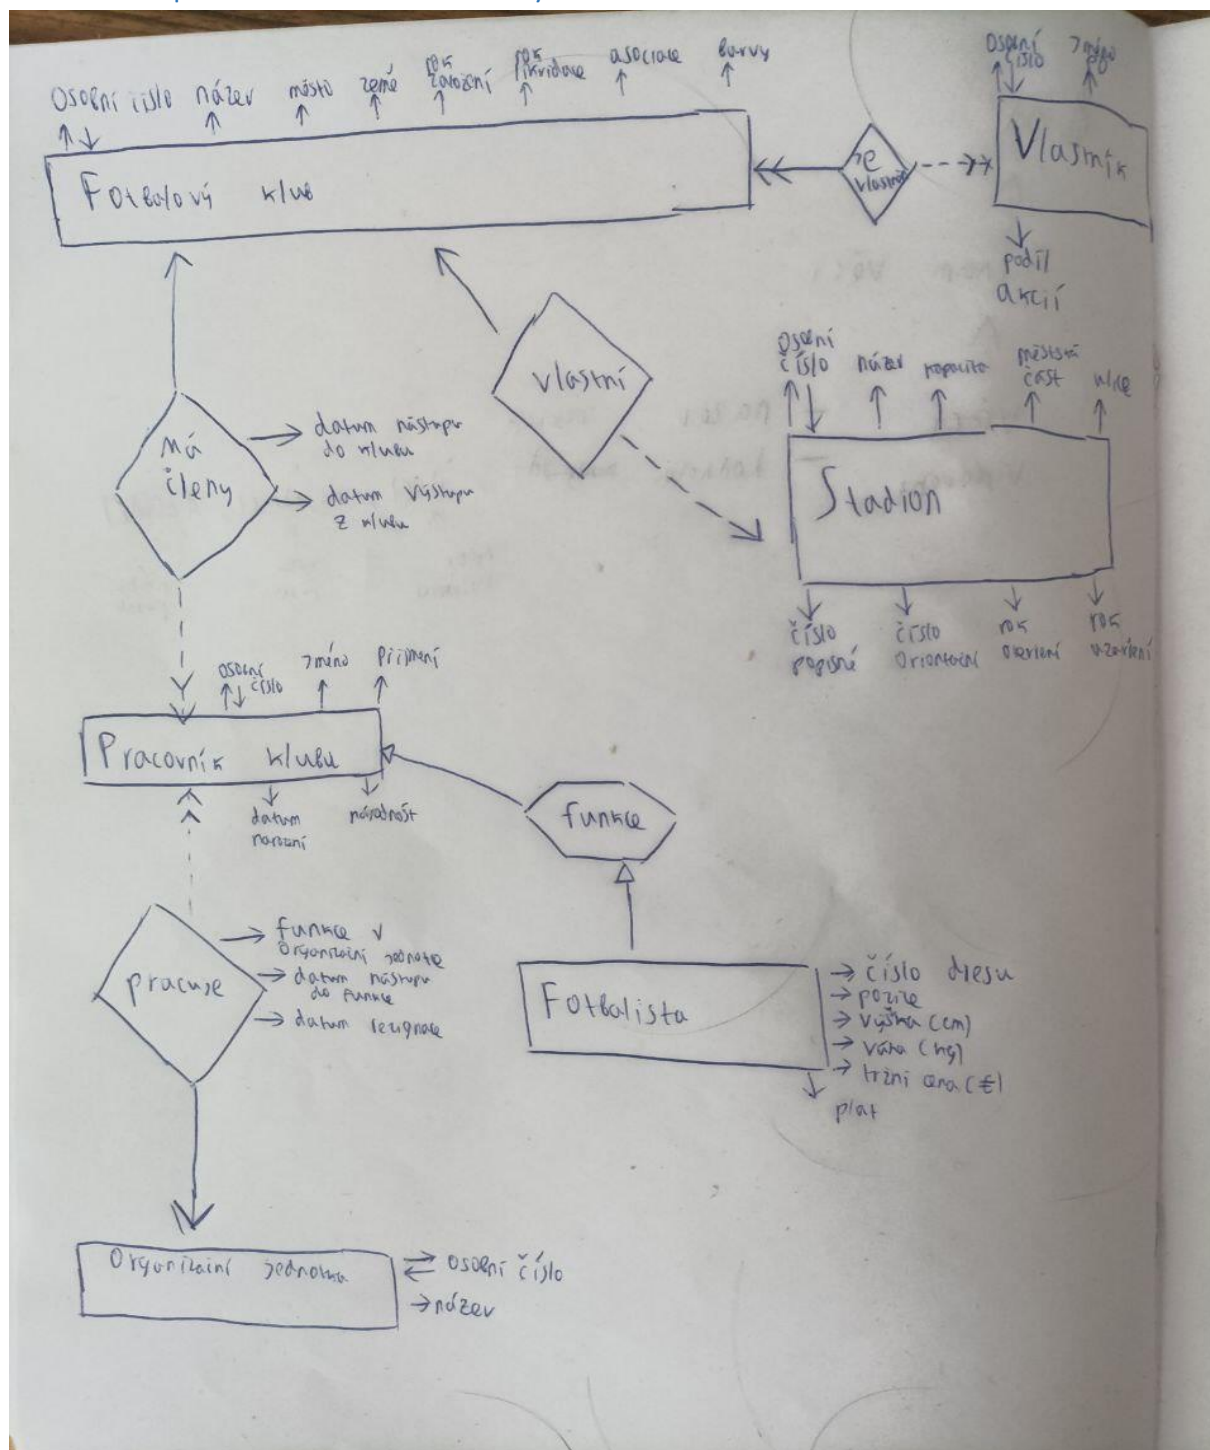 osobní číslo název město země rok založení rok likvidace asociace barvy
Fotbalový klub
je
vlastněn
osobní
číslo
jméno
Vlastník
podíl
akcií
vlastní
osobní
číslo
název
kapacita
městská
část
ulice
Stadion
číslo
popisné
číslo
orientační
rok
otevření
rok
uzavření
má
členy
datum nástupu
do klubu
datum výstupu
z klubu
osobní
číslo
jméno
příjmení
Pracovník klubu
datum
narození
národnost
funkce
pracuje
funkce v
organizační jednotce
datum nástupu
do funkce
datum rezignace
Fotbalista
číslo dresu
pozice
výška (cm)
váha (kg)
tržní cena (€)
plat
Organizační jednotka
osobní číslo
název